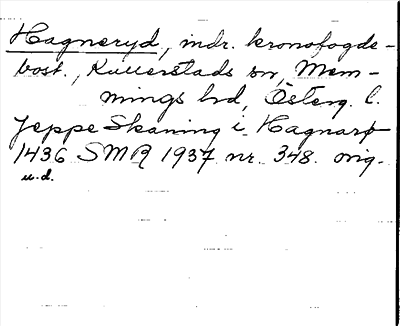 Hagneryd, indr. kronofogde-
bost., Kullerstads sn, Mem-
mings hd, Österg. l.
Jeppe Skaning i Hagnarþ
1436 SMR 1937 nr. 348. orig.
u.d.